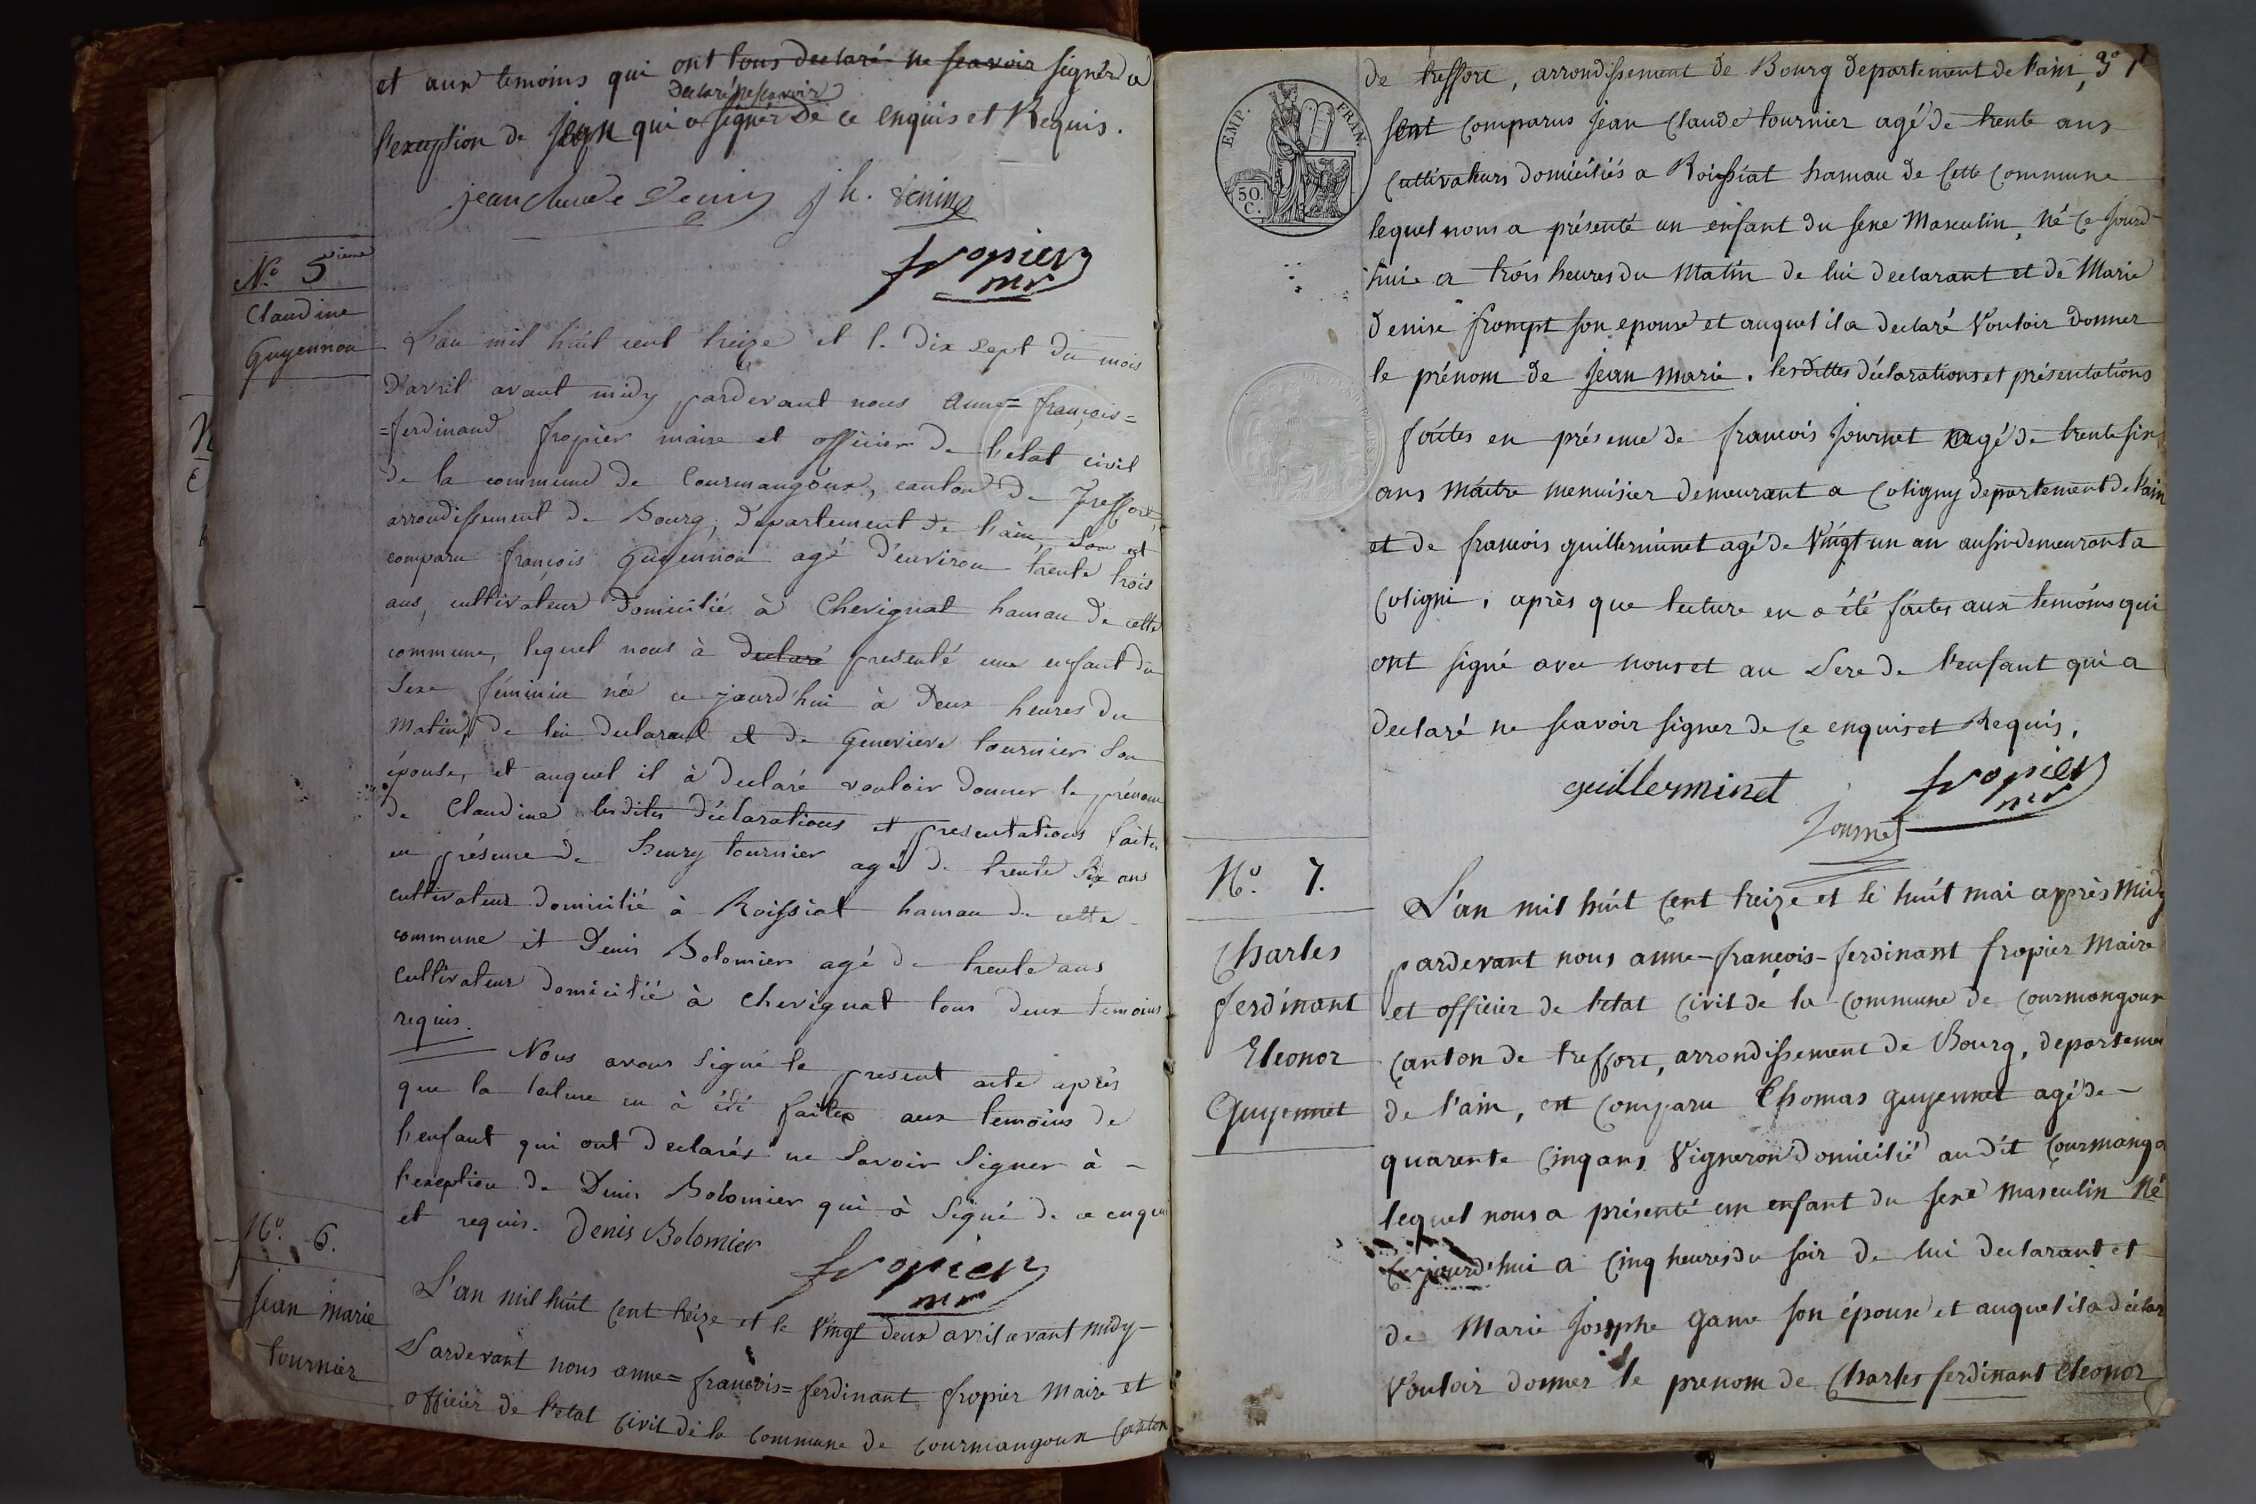 et aux temoins qui ont tous declaré ne scavoir signer a
Declaré ne scavoir
l'exception de jean qui a signer De ce enquis et Requis.
jean claude Denin j h. Denin
fropier
mr
N.º 5ieme
Claudine
Guyennon
L'an mil huit cent treize et le Dix Sept du mois
D'avril avant midy pardevant nous Anne= françois=
=ferdinand fropier maire et officier de l'état civil
de la commune de Courmangoux, canton De Treffort,
arrondissement de Bourg, Departement de l'ain, Son est
comparu françois Guyennon agé d'environ trente trois
ans, cultivateur Domicilié à Chevignat hamau De cette
commune, lequel nous à declaré presenté une enfant du
Sexe féminin née ce jourd'hui à Deux heures Du
matin, De lui declarant et de Genevieve tournier Son
épouse, et auquel il à declaré vouloir donner le prénom
de Claudine lesdites déclarations et presentations faites
en présence de henry tournier agé de trente Six ans
cultivateur domicilié à Roissiat hamau de cette
commune et Denis Bolomier agé de trente ans
cultivateur domicilié à chevignat tous deux temoins
requis.
Nous avons signé le present acte après
que la lecture en à été faites aux temoins de
l'enfant qui ont declarés ne Savoir Signer à -
l'exception de Denis Bolomier qui à Signé de ce enquis
et requis. Denis Bolomier
fropier
mr
N.º 6.
jean marie
tournier
L'an mil huit cent treize et le vingt deux avril avant midy
Pardevant nous anne= francois= ferdinant fropier Maire et
officier de l'etat civil de la commune de courmangoux canton
EMP. FRAN.
50.
C.
de treffort, arrondissement de Bourg departement de l'ain, 3º
sent comparus jean claude tournier agé de trente ans
cultivateurs domiciliés a Roissiat hamau de cette commune
lequel nous a présenté un enfant du sexe Masculin, Né ce jourd
huie a trois heures du Matin de lui declarant et de Marie
Denise frompt son epouse et auquel il a declaré Vouloir donner
le prénom de jean marie. lesdittes déclarations et présentations
faites en présence de francois journet agé de trente six
ans maitre menuisier demeurant a Coligny departement de l'ain
et de francois guillerminet agé de Vingt un an aussi demeurant a
Coligni, après que lecture en a été faites aux temoins qui
ont signé avec nous et au Pere de l'enfant qui a
declaré ne scavoir signer de ce enquis et Requis.
guillerminet
fropier
mr
Journet
N.º 7.
Charles
ferdinant
Eleonor
Guyennet
L'an mil huit cent treize et le huit mai après Midy
pardevant nous anne-francois-ferdinant fropier Maire
et officier de l'etat civil de la commune de courmangoux
canton de treffort, arrondissement de Bourg, departemen
de l'ain, est comparu Thomas guyennet agé de
quarente cinq ans, Vigneron Domicilié audit Courmango
lequel nous a présenté un enfant du sexe masculin Né
cejourd'hui a cinq heures du soir de lui declarant et
de Marie josephe game son épouse et auquel il a déclar
Vouloir donner le prenom de Charles ferdinant eleonor